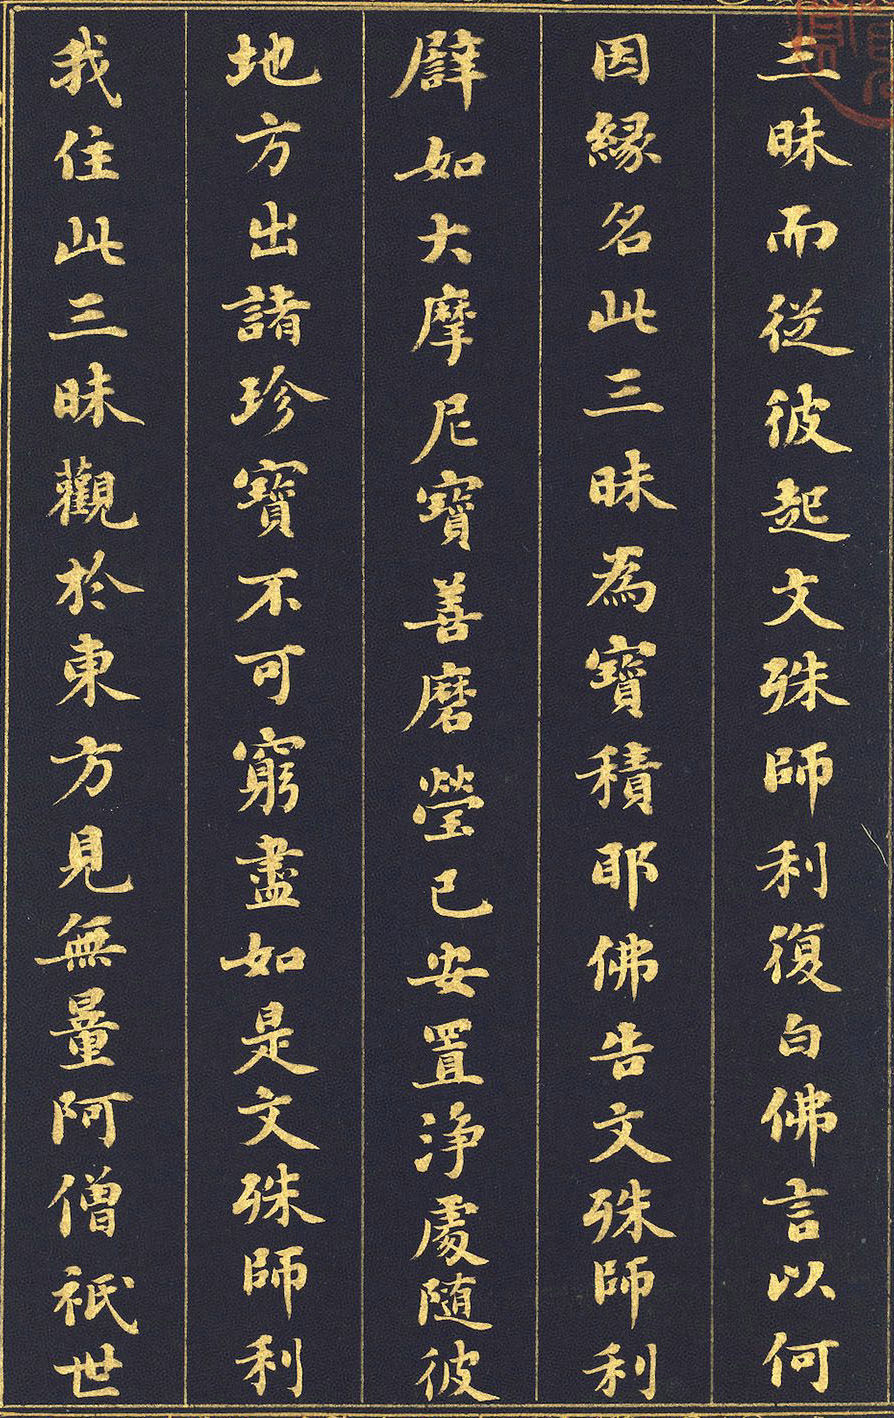 三昧而従彼起文殊師利復白佛言以何
因縁名此三昧為寶積耶佛告文殊師利
譬如大摩尼寶善磨瑩已安置浄處随彼
地方出諸珍寶不可窮盡如是文殊師利
我住此三昧觀於東方見無量阿僧祇世